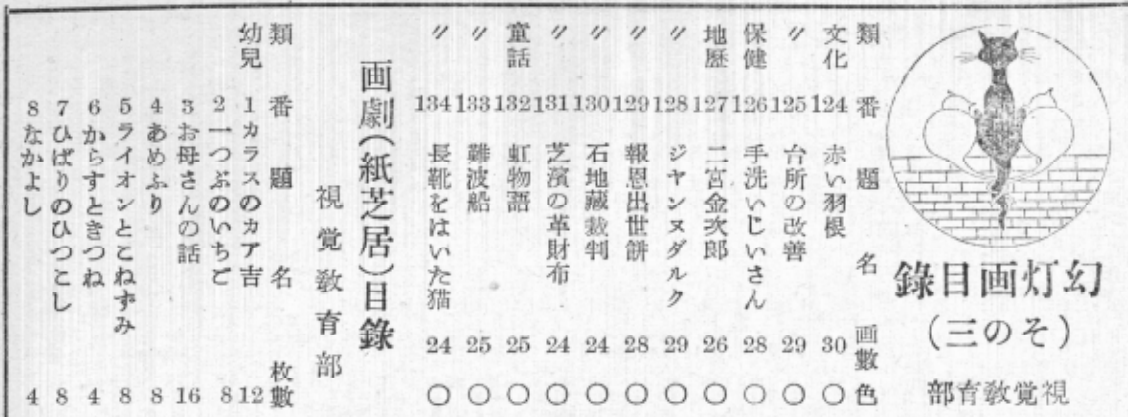 幻灯画目錄
(その三)
視覚教育部
類 番 題名 画數 色
文化 124 赤い羽根 30 ○
〃 125 台所の改善 29 ○
保健 126 手洗いじいさん 28 ○
地歷 127 二宮金次郎 26 ○
〃 128 ジヤンヌダルク 29 ○
〃 129 報恩出世餅 28 ○
〃 130 石地藏裁判 24 ○
〃 131 芝濱の革財布 24 ○
童話 132 虹物語 25 ○
〃 133 難波船 25 ○
〃 134 長靴をはいた猫 24 ○
画劇(紙芝居)目錄
視覚教育部
類 番 題名 枚數
幼児 1 カラスのカア吉 12
2 一つぶのいちご 8
3 お母さんの話 16
4 あめふり 8
5 ライオンとこねずみ 8
6 からすときつね 4
7 ひばりのひつこし 8
8 なかよし 4